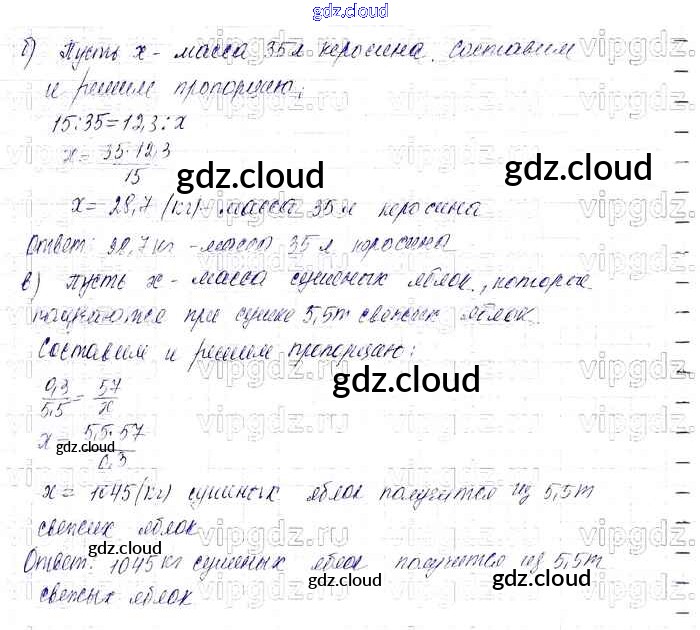 gdz.cloud
б) Пусть x - масса 35 л керосина. Составим
и решим пропорцию:
15:35=12,3:x
x= 35·12,3
15
gdz.cloud
gdz.cloud
x= 28,7 (кг) - масса 35 л керосина
Ответ: 28,7 кг - масса 35 л керосина
в) Пусть x - масса сушеных яблок, которые
получаются при сушке 5,5т свежих яблок.
Составим и решим пропорцию:
0,3/5,5 = 57/x
gdz.cloud
x= 5,5·57
0,3
gdz.cloud
x= 1045(кг) сушеных яблок получится из 5,5т
свежих яблок
gdz.cloud
Ответ: 1045 кг сушеных яблок получится из 5,5т
gdz.cloud
gdz.cloud
свежих яблок